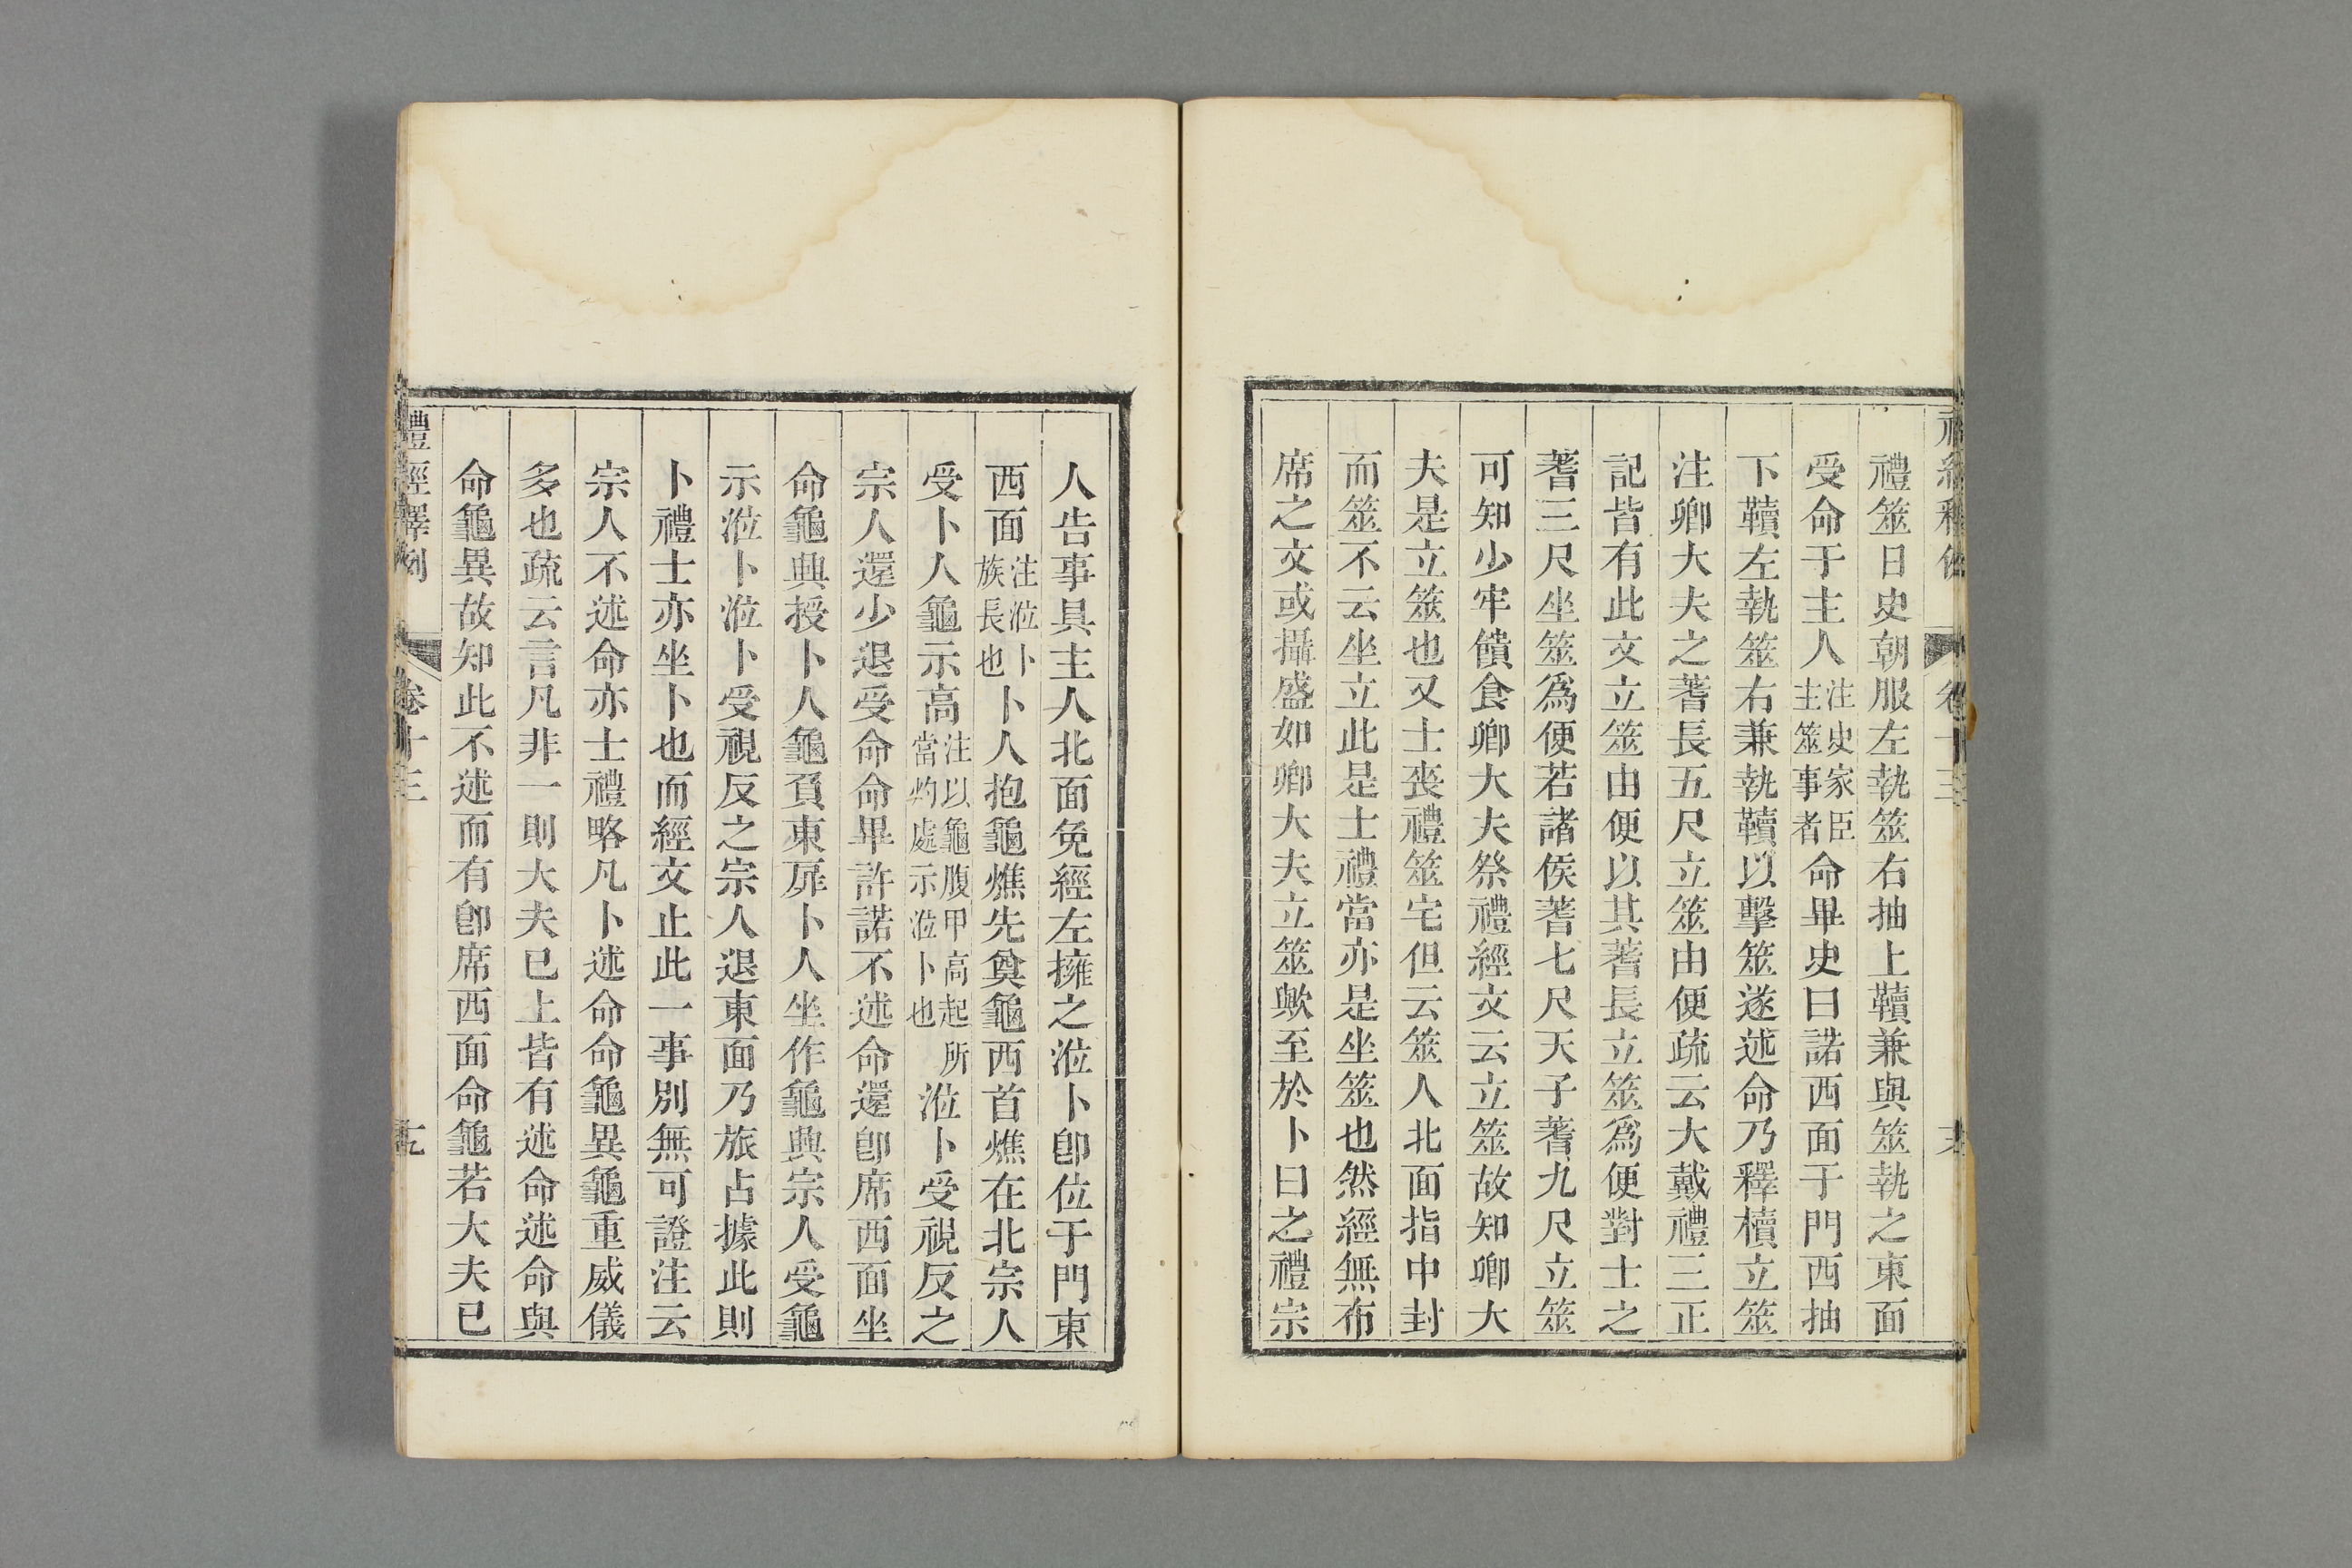 禮筮日史朝服左執筮右抽上韇兼與筮執之東面
受命于主人注史家臣主筮事者命畢史曰諾西面于門西抽
下韇左執筮右兼執韇以擊筮遂述命乃釋櫝立筮
注卿大夫之蓍長五尺立筮由便疏云大戴禮三正
記皆有此文立筮由便以其蓍長立筮爲便對士之
蓍三尺坐筮爲便若諸侯蓍七尺天子蓍九尺立筮
可知少牢饋食卿大夫祭禮經文云立筮故知卿大
夫是立筮也又士喪禮筮宅但云筮人北面指中封
而筮不云坐立此是士禮當亦是坐筮也然經無布
席之文或攝盛如卿大夫立筮歟至於卜曰之禮宗
人告事具主人北面免絰左擁之涖卜卽位于門東
西面注涖卜族長也卜人抱龜燋先奠龜西首燋在北宗人
受卜人龜示高注以龜腹甲高起所當灼處示涖卜也涖卜受視反之
宗人還少退受命命畢許諾不述命還卽席西面坐
命龜興授卜人龜負東扉卜人坐作龜興宗人受龜
示涖卜涖卜受視反之宗人退東面乃旅占據此則
卜禮士亦坐卜也而經文止此一事別無可證注云
宗人不述命亦士禮略凡卜述命命龜異龜重威儀
多也疏云言凡非一則大夫已上皆有述命述命與
命龜異故知此不述而有卽席西面命龜若大夫已
禮經釋例
卷十三